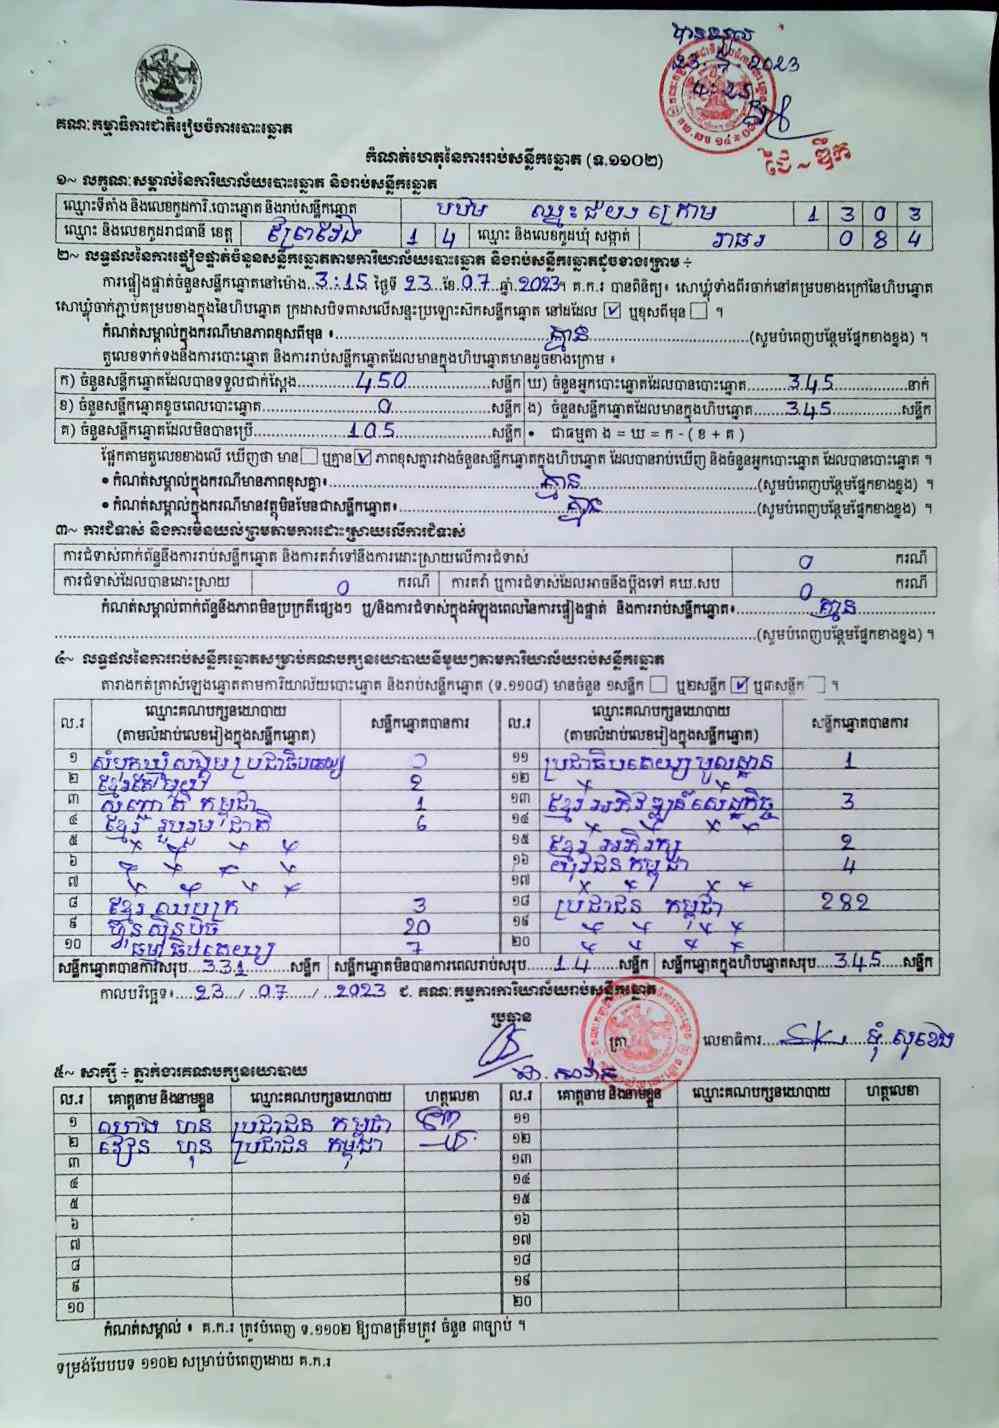 បានឃើញ
23. 7. 2023
4:25
គណៈកម្មាធិការជាតិរៀបចំការបោះឆ្នោត
កំណត់ហេតុនៃការរាប់សន្លឹកឆ្នោត (ទ.១១០២)
១~ លក្ខណៈសម្គាល់នៃការិយាល័យបោះឆ្នោត និងរាប់សន្លឹកឆ្នោត
ឈ្មោះទីតាំង និងលេខកូដការិ.បោះឆ្នោត និងរាប់សន្លឹកឆ្នោត ក្រោម 1 3 0 3
ឈ្មោះ និងលេខកូដរាជធានី ខេត្ត ព្រៃវែង 1 4 ឈ្មោះ និងលេខកូដឃុំ សង្កាត់ 0 8 4
២~ លទ្ធផលនៃការផ្ទៀងផ្ទាត់ចំនួនសន្លឹកឆ្នោតតាមការិយាល័យបោះឆ្នោត និងរាប់សន្លឹកឆ្នោតដូចខាងក្រោម ÷
ការផ្ទៀងផ្ទាត់ចំនួនសន្លឹកឆ្នោតនៅម៉ោង..3:15 ថ្ងៃទី 23 ខែ.07.ឆ្នាំ.2023។ គ.ក.រ បានពិនិត្យ៖ សោឃ្លុំទាំងពីរចាក់នៅគម្របខាងក្រៅនៃហិបឆ្នោត
សោឃ្លុំចាក់ភ្ជាប់គម្របខាងក្នុងនៃហិបឆ្នោត ក្រដាសបិទពាសលើសន្ទះប្រឡោះស៊កសន្លឹកឆ្នោត នៅដដែល ☑ ឬខុសពីមុន ☐ ។
កំណត់សម្គាល់ក្នុងករណីមានភាពខុសពីមុន ៖ គ្មាន (សូមបំពេញបន្ថែមផ្នែកខាងខ្នង) ។
តួលេខទាក់ទងនឹងការបោះឆ្នោត និងការរាប់សន្លឹកឆ្នោតដែលមានក្នុងហិបឆ្នោតមានដូចខាងក្រោម ៖
ក) ចំនួនសន្លឹកឆ្នោតដែលបានទទួលជាក់ស្តែង 450 សន្លឹក ឃ) ចំនួនអ្នកបោះឆ្នោតដែលបានបោះឆ្នោត 345 នាក់
ខ) ចំនួនសន្លឹកឆ្នោតខូចពេលបោះឆ្នោត 0 សន្លឹក ង) ចំនួនសន្លឹកឆ្នោតដែលមានក្នុងហិបឆ្នោត 345 សន្លឹក
គ) ចំនួនសន្លឹកឆ្នោតដែលមិនបានប្រើ 105 សន្លឹក • ជាធម្មតា ង = ឃ = ក - ( ខ + គ )
ផ្អែកតាមតួលេខខាងលើ ឃើញថា មាន ☐ ឬគ្មាន ☑ ភាពខុសគ្នារវាងចំនួនសន្លឹកឆ្នោតក្នុងហិបឆ្នោត ដែលបានរាប់ឃើញ និងចំនួនអ្នកបោះឆ្នោត ដែលបានបោះឆ្នោត ។
• កំណត់សម្គាល់ក្នុងករណីមានភាពខុសគ្នា៖ គ្មាន (សូមបំពេញបន្ថែមផ្នែកខាងខ្នង) ។
• កំណត់សម្គាល់ក្នុងករណីមានវត្ថុមិនមែនជាសន្លឹកឆ្នោត៖ គ្មាន (សូមបំពេញបន្ថែមផ្នែកខាងខ្នង) ។
៣~ ការជំទាស់ និងការមិនយល់ព្រមតាមការដោះស្រាយលើការជំទាស់
ការជំទាស់ពាក់ព័ន្ធនឹងការរាប់សន្លឹកឆ្នោត និងការតវ៉ាទៅនឹងការដោះស្រាយលើការជំទាស់ 0 ករណី
ការជំទាស់ដែលបានដោះស្រាយ 0 ករណី ការតវ៉ា ឬការជំទាស់ដែលអាចនឹងប្តឹងទៅ គឃ.សប 0 ករណី
កំណត់សម្គាល់ពាក់ព័ន្ធនឹងភាពមិនប្រក្រតីផ្សេងៗ ឬ/និងការជំទាស់ក្នុងអំឡុងពេលនៃការផ្ទៀងផ្ទាត់ និងការរាប់សន្លឹកឆ្នោត៖ គ្មាន
(សូមបំពេញបន្ថែមផ្នែកខាងខ្នង) ។
៤~ លទ្ធផលនៃការរាប់សន្លឹកឆ្នោតសម្រាប់គណបក្សនយោបាយនីមួយៗតាមការិយាល័យរាប់សន្លឹកឆ្នោត
តារាងកត់ត្រាសំឡេងឆ្នោតតាមការិយាល័យបោះឆ្នោត និងរាប់សន្លឹកឆ្នោត (ទ.១១០៨) មានចំនួន ១សន្លឹក ☐ ឬ២សន្លឹក ☑ ឬ៣សន្លឹក ☐ ។
ល.រ ឈ្មោះគណបក្សនយោបាយ (តាមលំដាប់លេខរៀងក្នុងសន្លឹកឆ្នោត) សន្លឹកឆ្នោតបានការ ល.រ ឈ្មោះគណបក្សនយោបាយ (តាមលំដាប់លេខរៀងក្នុងសន្លឹកឆ្នោត) សន្លឹកឆ្នោតបានការ
១ សំបុកឃ្មុំសង្គមប្រជាធិបតេយ្យ ១១ ប្រជាធិបតេយ្យមូលដ្ឋាន 1
២ ខ្មែរតែមួយ 2 ១២ x x x
៣ សញ្ជាតិ កម្ពុជា 1 ១៣ ខ្មែរអភិវឌ្ឍន៍សេដ្ឋកិច្ច 3
៤ ខ្មែរ រួបរួម ជាតិ 6 ១៤ x x x x
៥ x x x x ១៥ ខ្មែរ អភិរក្ស 2
៦ x x x x ១៦ យុវជនកម្ពុជា 4
៧ x x x x ១៧ x x x x
៨ ខ្មែរ ឈប់ក្រ 3 ១៨ ប្រជាជន កម្ពុជា 282
៩ ហ្វ៊ុនស៊ិនប៉ិច 20 ១៩ x x x x
១០ ធម្មាធិបតេយ្យ 7 ២០ x x x x
សន្លឹកឆ្នោតបានការសរុប 331 សន្លឹក សន្លឹកឆ្នោតមិនបានការពេលរាប់សរុប 14 សន្លឹក សន្លឹកឆ្នោតក្នុងហិបឆ្នោតសរុប 345 សន្លឹក
កាលបរិច្ឆេទ៖ 23 / 07 / 2023 ជ. គណៈកម្មការការិយាល័យរាប់សន្លឹកឆ្នោត
ប្រធាន
ត្រា លេខាធិការ
៥~ សាក្សី ÷ ភ្នាក់ងារគណបក្សនយោបាយ
ល.រ គោត្តនាម និងនាមខ្លួន ឈ្មោះគណបក្សនយោបាយ ហត្ថលេខា ល.រ គោត្តនាម និងនាមខ្លួន ឈ្មោះគណបក្សនយោបាយ ហត្ថលេខា
១ ហន ប្រជាជន កម្ពុជា ១១
២ ហុន ប្រជាជន កម្ពុជា ១២
៣ ១៣
៤ ១៤
៥ ១៥
៦ ១៦
៧ ១៧
៨ ១៨
៩ ១៩
១០ ២០
កំណត់សម្គាល់ ៖ គ.ក.រ ត្រូវបំពេញ ទ.១១០២ ឱ្យបានត្រឹមត្រូវ ចំនួន ៣ច្បាប់ ។
ទម្រង់បែបបទ ១១០២ សម្រាប់បំពេញដោយ គ.ក.រ